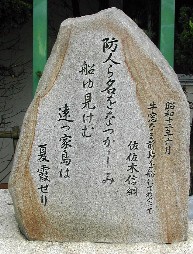 昭和十五年六月
佐佐木信綱
防人ら名をなつかしみ
船ゆ見けむ
遠つ家島は
夏霞せり